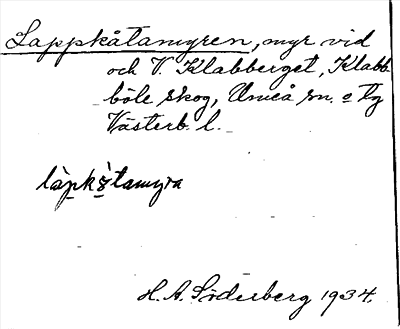 Lappkåtamyren, myr vid
och V. Klabberget, Klabb
böle skog, Umeå sn. o tg
Västerb. l.
làpkǻtamyra
H. A. Söderberg 1934.